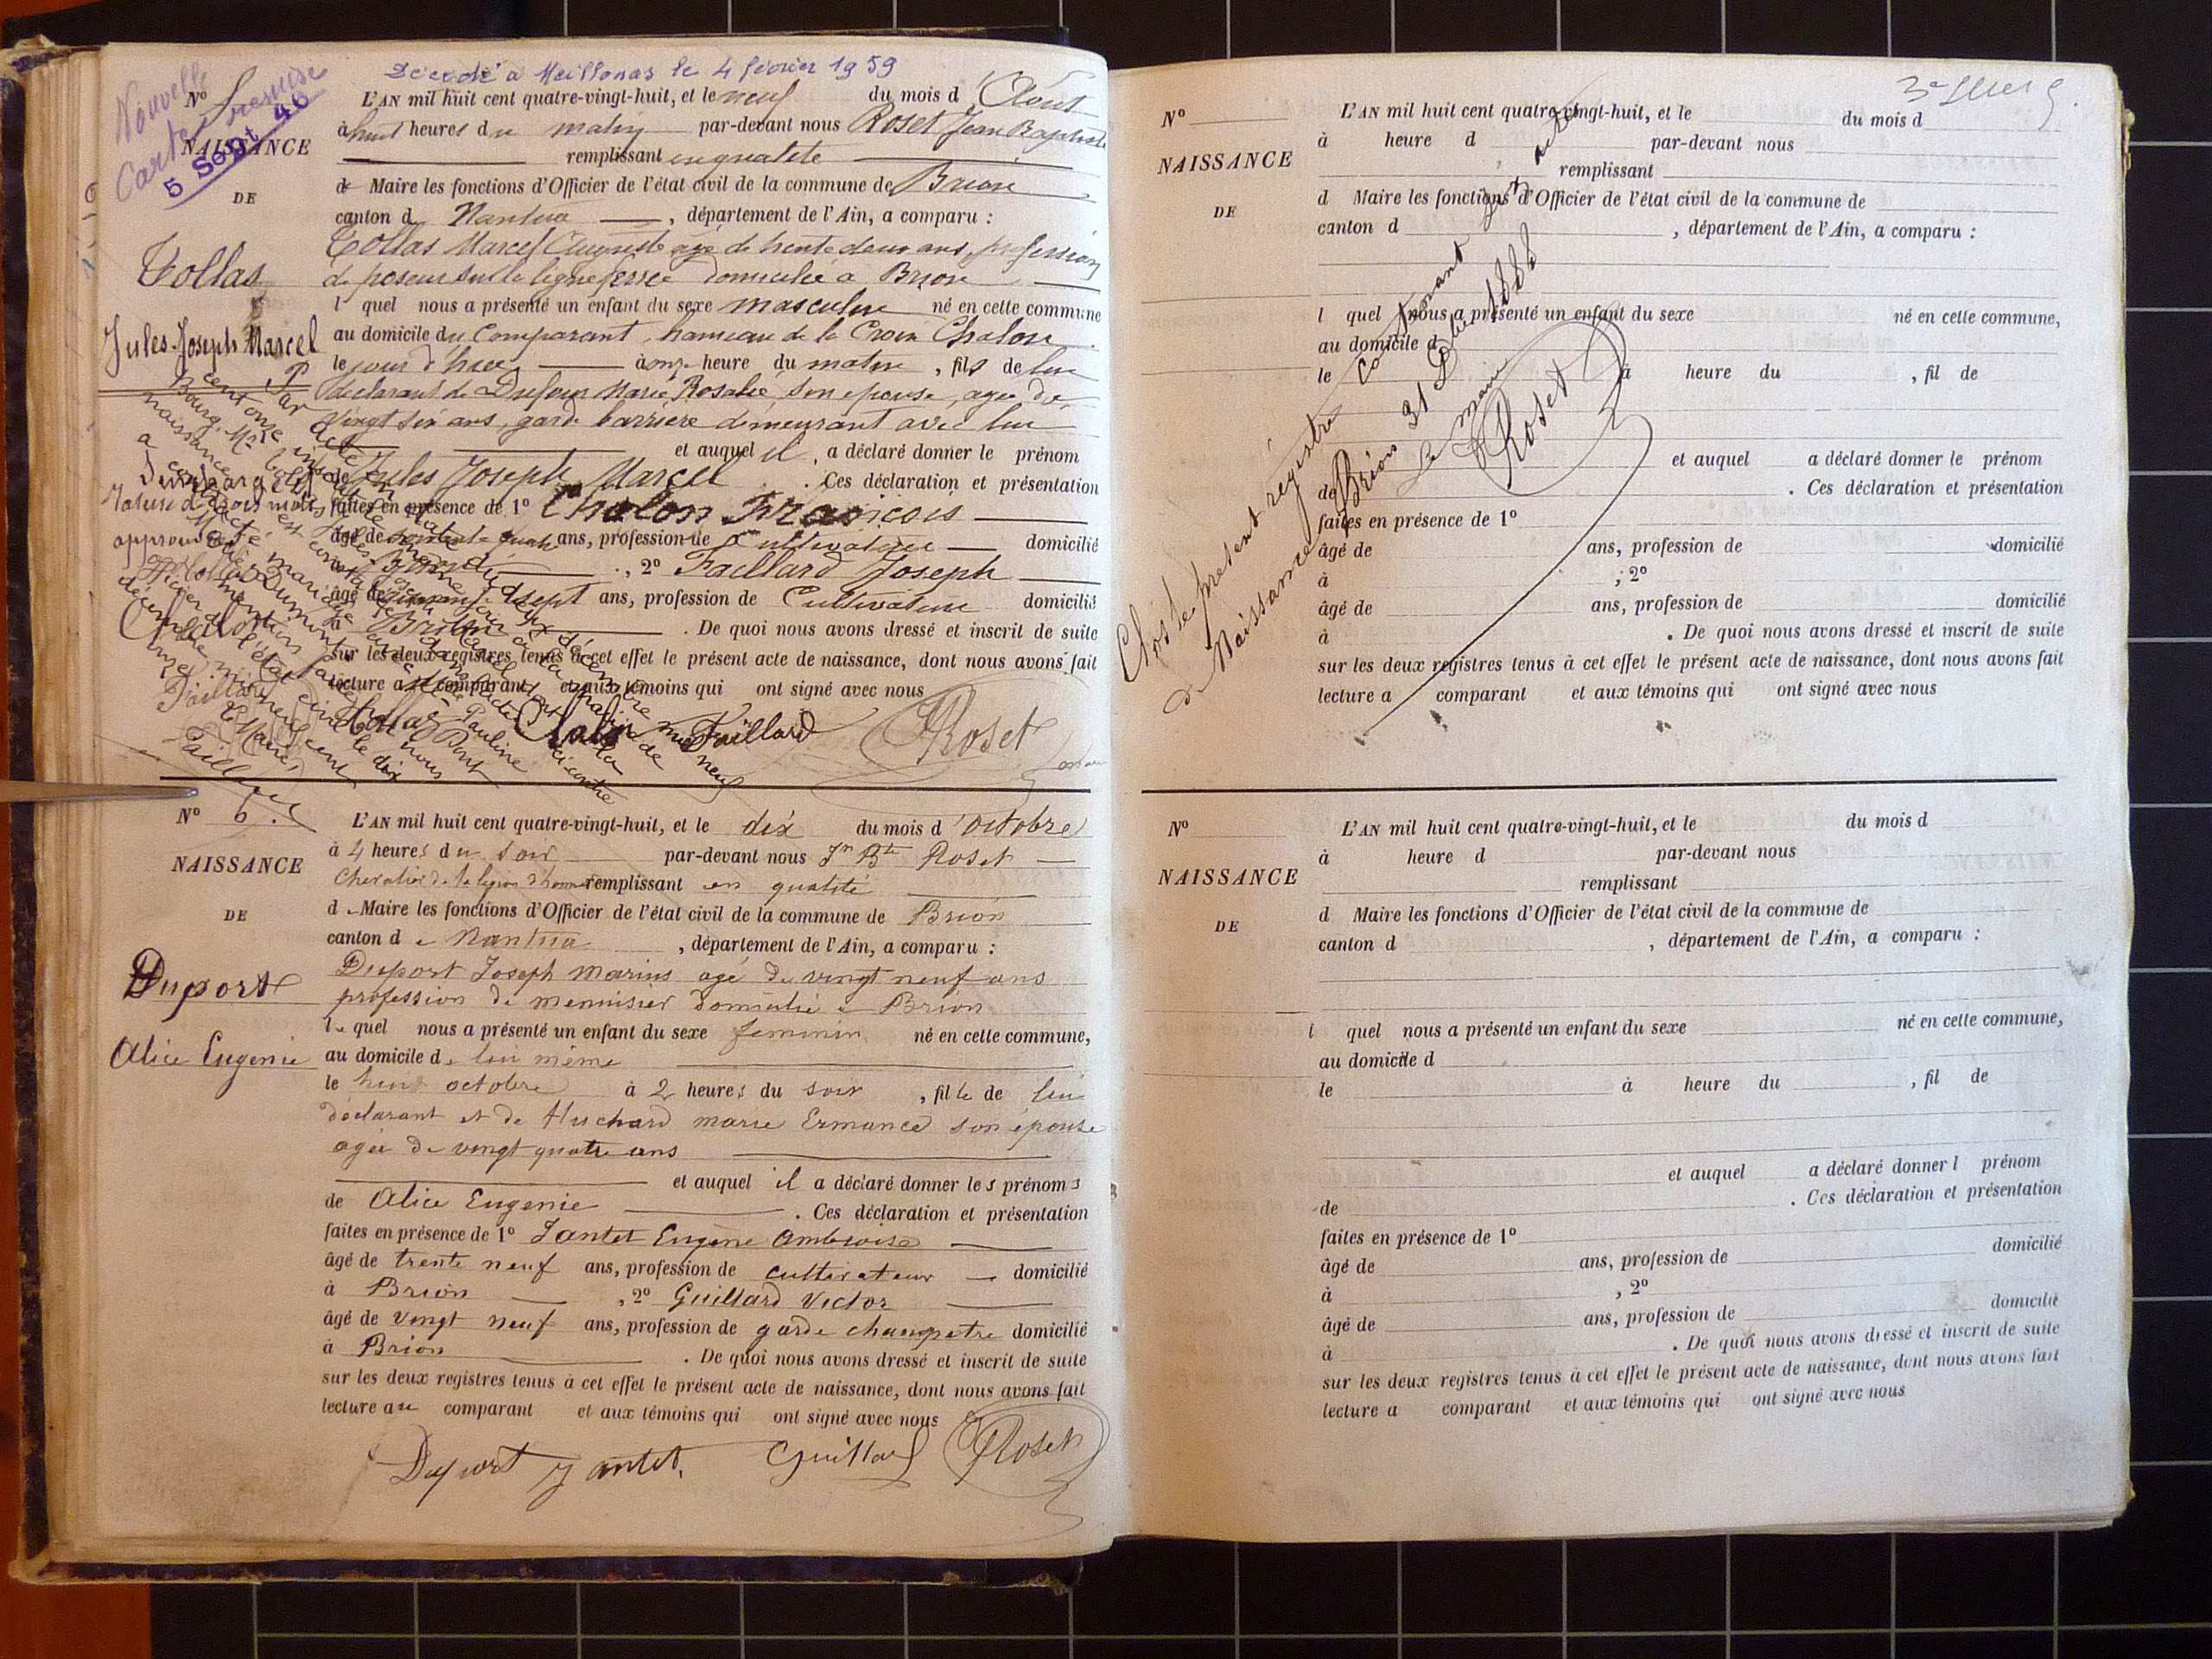 Décédé à Meillonas le 4 février 1959
Nouvelle
Carte remise
5 Sept 46
Nº 5
NAISSANCE
DE
Tollas
Jules Joseph Marcel
L'AN mil huit cent quatre-vingt-huit, et le neuf du mois d'Aout
à huit heures du matin par-devant nous Roset Jean Baptiste
remplissant en qualité
de Maire les fonctions d'Officier de l'état civil de la commune de Brion
canton de Nantua, département de l'Ain, a comparu :
Tollas Marcel Auguste agé de trente deux ans, profession
de poseur sur la ligne ferrée domicilié à Brion
lequel nous a présenté un enfant du sexe masculin né en cette commune
au domicile du Comparant, hameau de la Croix Chalon
le jour d'hier à onze heure du matin, fils de lui
déclarant et de Dufour Marie Rosalie, son épouse, agée de
vingt six ans, garde barrière demeurant avec lui
et auquel il a déclaré donner le prénom
de Jules Joseph Marcel. Ces déclaration et présentation
faites en présence de 1º Chalon François
âgé de quatre ans, profession de Cultivateur domicilié
à Brion, 2º Faillard Joseph
âgé de sept ans, profession de Cultivateur domicilié
à Brion. De quoi nous avons dressé et inscrit de suite
sur les deux registres tenus à cet effet le présent acte de naissance, dont nous avons fait
lecture au comparant et aux témoins qui ont signé avec nous
Tollas Chalon Faillard Roset
Nº 6.
NAISSANCE
DE
Duport
Alice Eugenie
L'AN mil huit cent quatre-vingt-huit, et le dix du mois d'octobre
à 4 heures du soir par-devant nous Jn Bte Roset
Chevalier de la légion d'honneur remplissant en qualité
de Maire les fonctions d'Officier de l'état civil de la commune de Brion
canton de Nantua, département de l'Ain, a comparu :
Duport Joseph Marius agé de vingt neuf ans
profession de menuisier domicilié à Brion
lequel nous a présenté un enfant du sexe feminin né en cette commune,
au domicile de lui même
le huit octobre à 2 heures du soir, fille de lui
déclarant et de Huchard marie Ermance son épouse
agée de vingt quatre ans
et auquel il a déclaré donner les prénoms
de Alice Eugenie. Ces déclaration et présentation
faites en présence de 1º Jantet Eugène Ambroise
âgé de trente neuf ans, profession de cultivateur domicilié
à Brion, 2º Guillard Victor
âgé de vingt neuf ans, profession de garde champetre domicilié
à Brion. De quoi nous avons dressé et inscrit de suite
sur les deux registres tenus à cet effet le présent acte de naissance, dont nous avons fait
lecture au comparant et aux témoins qui ont signé avec nous
Duport Jantet Guillard Roset
Nº
NAISSANCE
DE
L'AN mil huit cent quatre-vingt-huit, et le du mois d
à heure d par-devant nous
remplissant
d Maire les fonctions d'Officier de l'état civil de la commune de
canton d , département de l'Ain, a comparu :
l quel nous a présenté un enfant du sexe né en cette commune,
au domicile d
le à heure du , fil de
et auquel a déclaré donner le prénom
de . Ces déclaration et présentation
faites en présence de 1º
âgé de ans, profession de domicilié
à , 2º
âgé de ans, profession de domicilié
à . De quoi nous avons dressé et inscrit de suite
sur les deux registres tenus à cet effet le présent acte de naissance, dont nous avons fait
lecture a comparant et aux témoins qui ont signé avec nous
Clos le présent registre contenant
de Naissance Brion 31 1888
Le maire
Roset
Nº
NAISSANCE
DE
L'AN mil huit cent quatre-vingt-huit, et le du mois d
à heure d par-devant nous
remplissant
d Maire les fonctions d'Officier de l'état civil de la commune de
canton d , département de l'Ain, a comparu :
l quel nous a présenté un enfant du sexe né en cette commune,
au domicile d
le à heure du , fil de
et auquel a déclaré donner l prénom
de . Ces déclaration et présentation
faites en présence de 1º
âgé de ans, profession de domicilié
à , 2º
âgé de ans, profession de domicilié
à . De quoi nous avons dressé et inscrit de suite
sur les deux registres tenus à cet effet le présent acte de naissance, dont nous avons fait
lecture a comparant et aux témoins qui ont signé avec nous